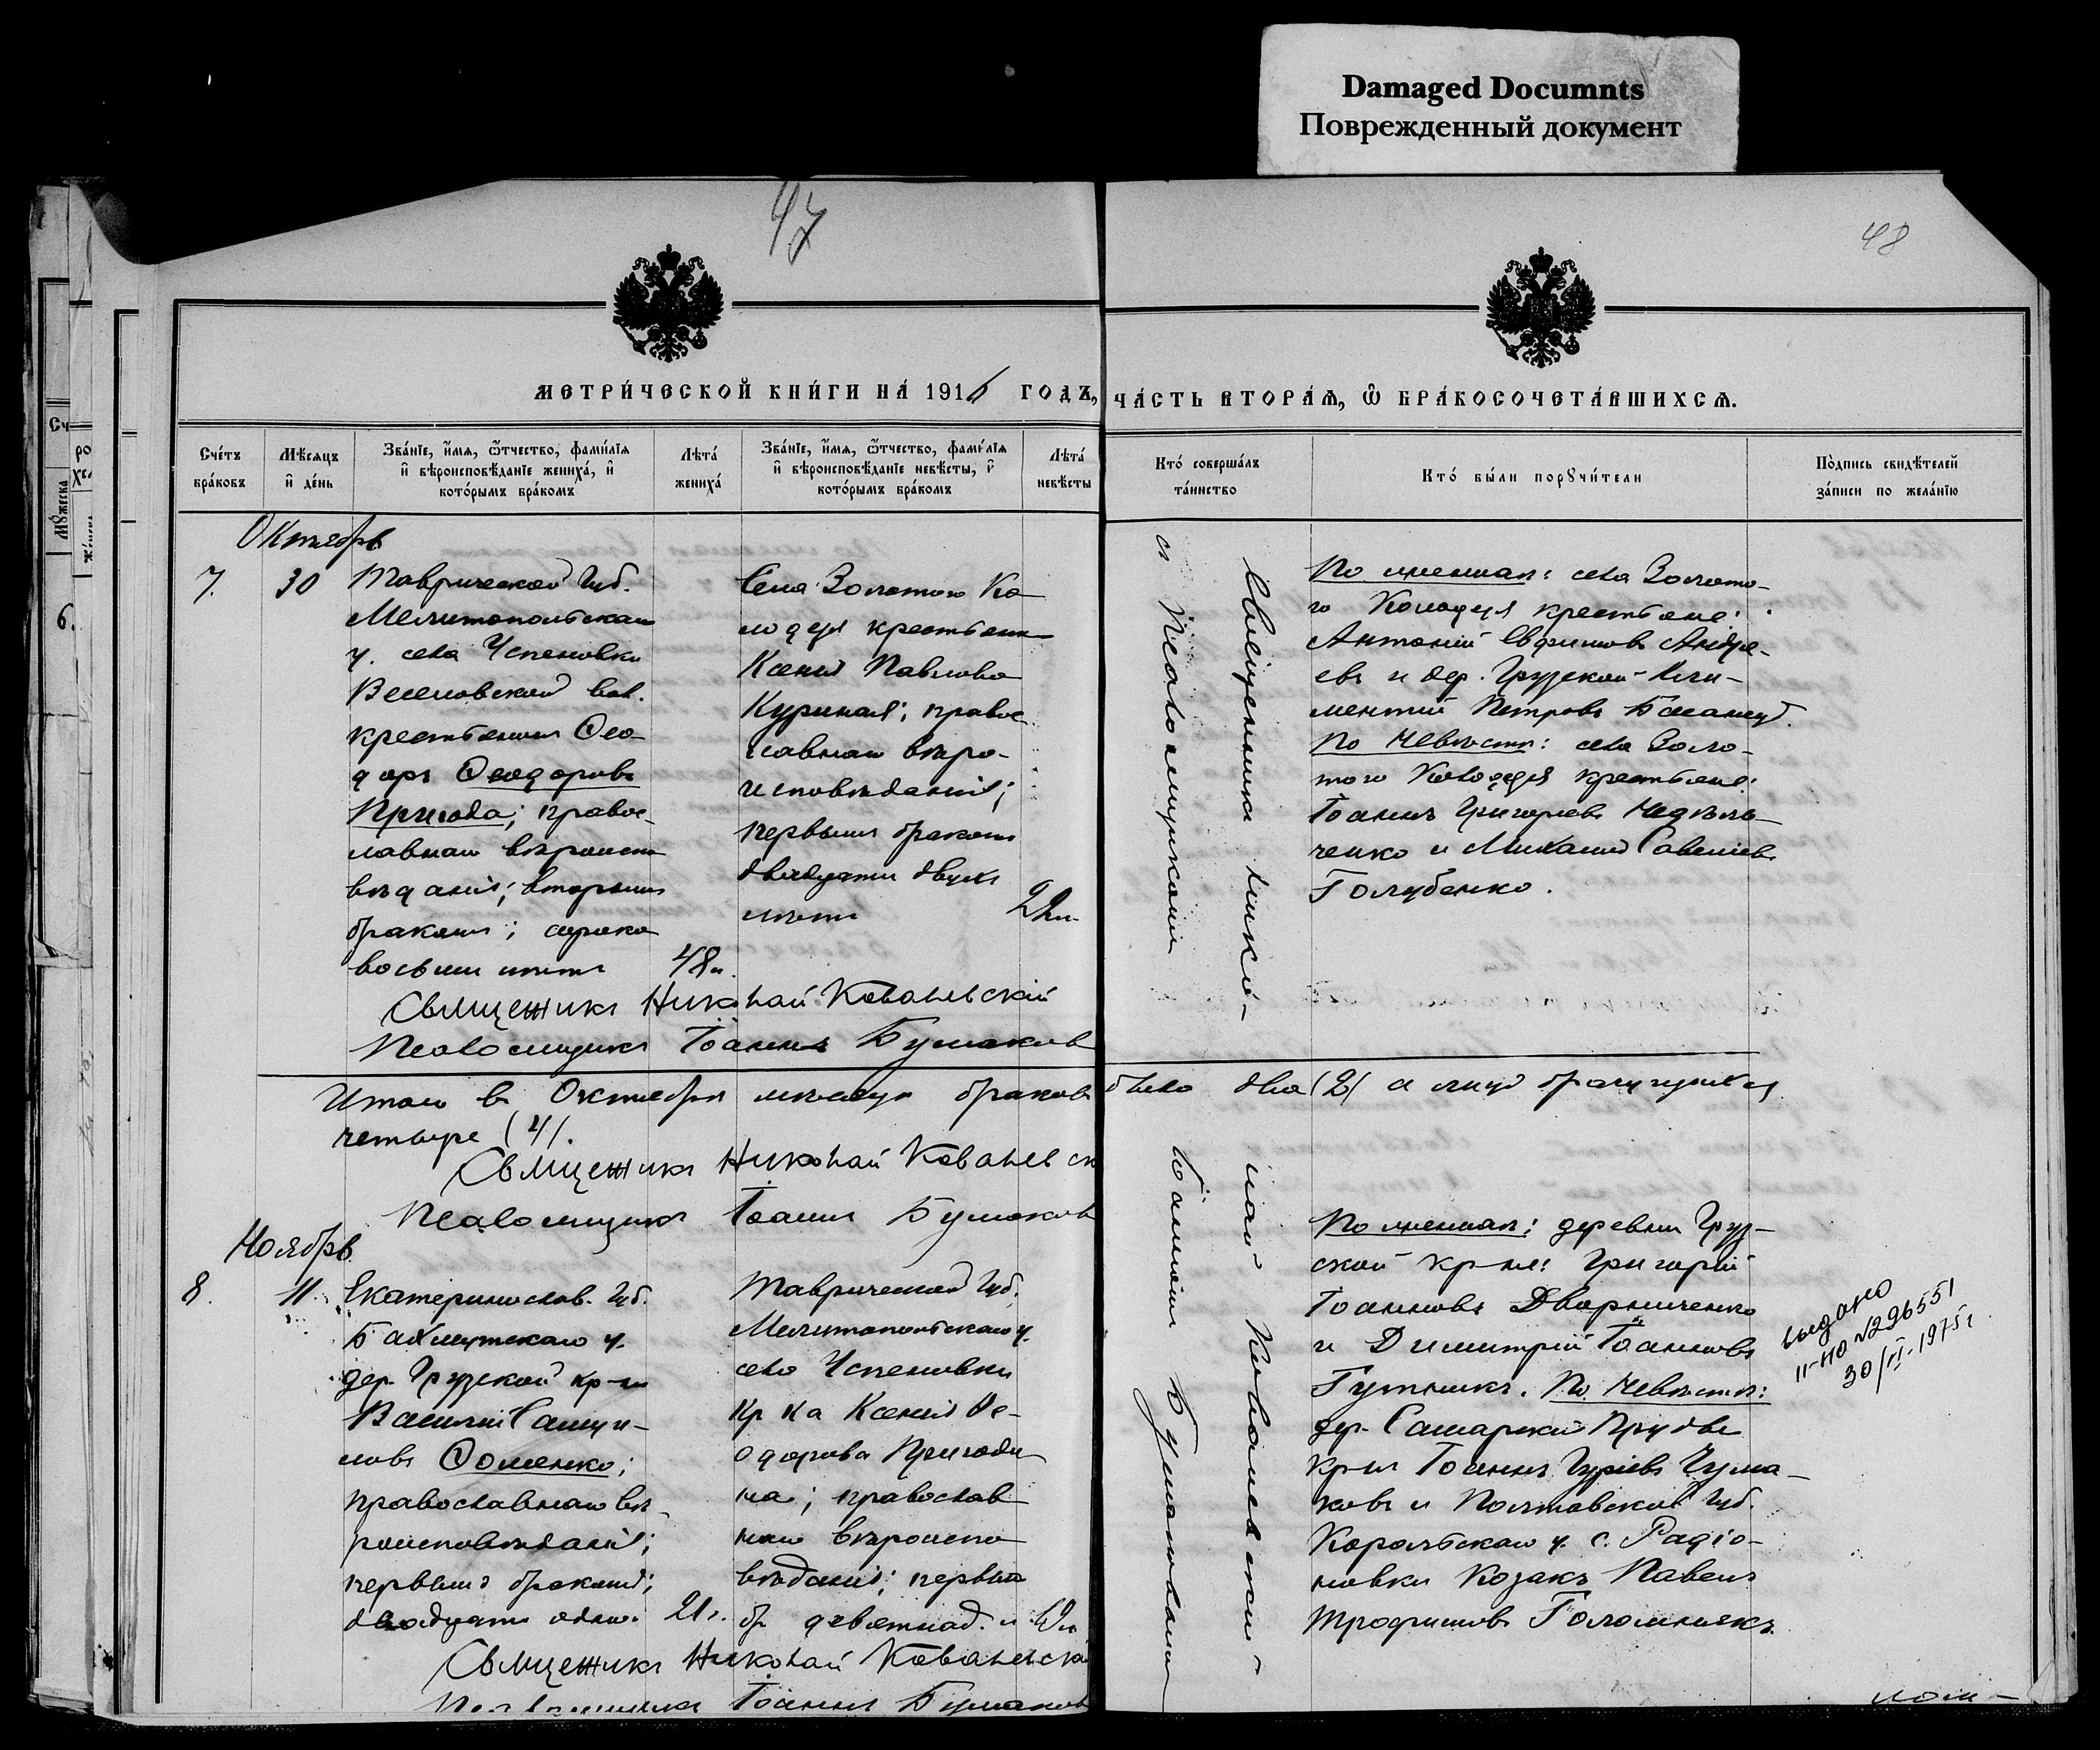 Damaged Documnts
Поврежденный документ
47
48
МЕТРИ́ЧЕСКОЙ КНИ́ГИ НА́ 1916 ГОДЪ, ЧА́СТЬ ВТОРА́Ѧ, Ѽ БРА́КОСОЧЕТА́ВШИХСѦ.
Сче́тъ бра́ковъ
Мѣ́сѧцъ и҆ де́нь
Зва́нїе, и҆́мѧ, ѻ҆́тчество, фами́лїѧ и҆ вѣроисповѣ́данїе жениха́, и҆ кото́рымъ бра́комъ
Лѣта́ жениха́
Зва́нїе, и҆́мѧ, ѻ҆́тчество, фами́лїѧ и҆ вѣроисповѣ́данїе невѣ́сты, и҆ кото́рымъ бра́комъ
Лѣта́ невѣ́сты
Кто́ соверша́лъ та́инство
Кто́ бы́ли порꙋчи́тели
По́дпись свидѣ́телей за́писи по жела́нїю
Октябрь
7.
30
Таврической Губ.
Мелитопольскаго
у. села Успеновки
Веселовской вол.
крестьянинъ Ѳео-
доръ Ѳеодоровъ
Пригода; правос-
лавнаго вѣроиспо
вѣданія; вторымъ
бракомъ; сорока
восьми лѣтъ
48 л.
Села Золотого Ко
лодезя крестьянка
Ксенія Павлова
Куриная; правос
лавнаго вѣро-
исповѣданія;
первымъ бракомъ
двадцати двухъ
лѣтъ
22 л.
Священникъ Николай Ковалевскій
Псаломщикъ Іоаннъ Бумаковъ
Священникъ Нико-
съ Псаломщикомъ
По женихѣ: села Золото-
го Колодезя крестьяне:
Антоній Евфимовъ Андре-
евъ и дер. Грузской Кли-
ментій Петровъ
По невѣстѣ: села Золо-
того Колодезя крестьяне:
Іоаннъ Григорьевъ Недѣль-
ченко и Михаилъ Савельевъ
Голубенко.
Итого въ Октябрѣ мѣсяцѣ браковъ было два (2) а лицъ брачущихся
четыре (4).
Священникъ Николай Ковалевск
Псаломщикъ Іоаннъ Бумаковъ
Ноябрь
8.
11
Екатеринослав. Губ.
Бахмутскаго у.
дер. Грузской кр-нъ
Василій Самуи-
ловъ Ѳоменко;
православнаго вѣ-
роисповѣданія;
первымъ бракомъ;
двадцати одного
21 г.
Таврической Губ.
Мелитопольскаго у.
села Успеновки
кр ка Ксенія Ѳе-
одорова Пригоди
на; православ
наго вѣроиспо
вѣданія; первым
бр девятнад. л
19 л
Священникъ Николай Ковалевскій
Псаломщикъ Іоаннъ Бумаковъ
лай Ковалевскій
Іоанномъ Бумаковымъ
По женихѣ: деревни Груз-
ской кр-не: Григорій
Іоанновъ Дворниченко
и Димитрій Іоанновъ
Гутникъ. По невѣстѣ:
дер. Самарскій Прудъ
кр-нъ Іоаннъ Гуріевъ Чума-
ковъ и Полтавской Губ.
у. с. Радіо-
новки козакъ Павелъ
Трофимовъ
выдано
II-НО №296551
30/VI-1975г.